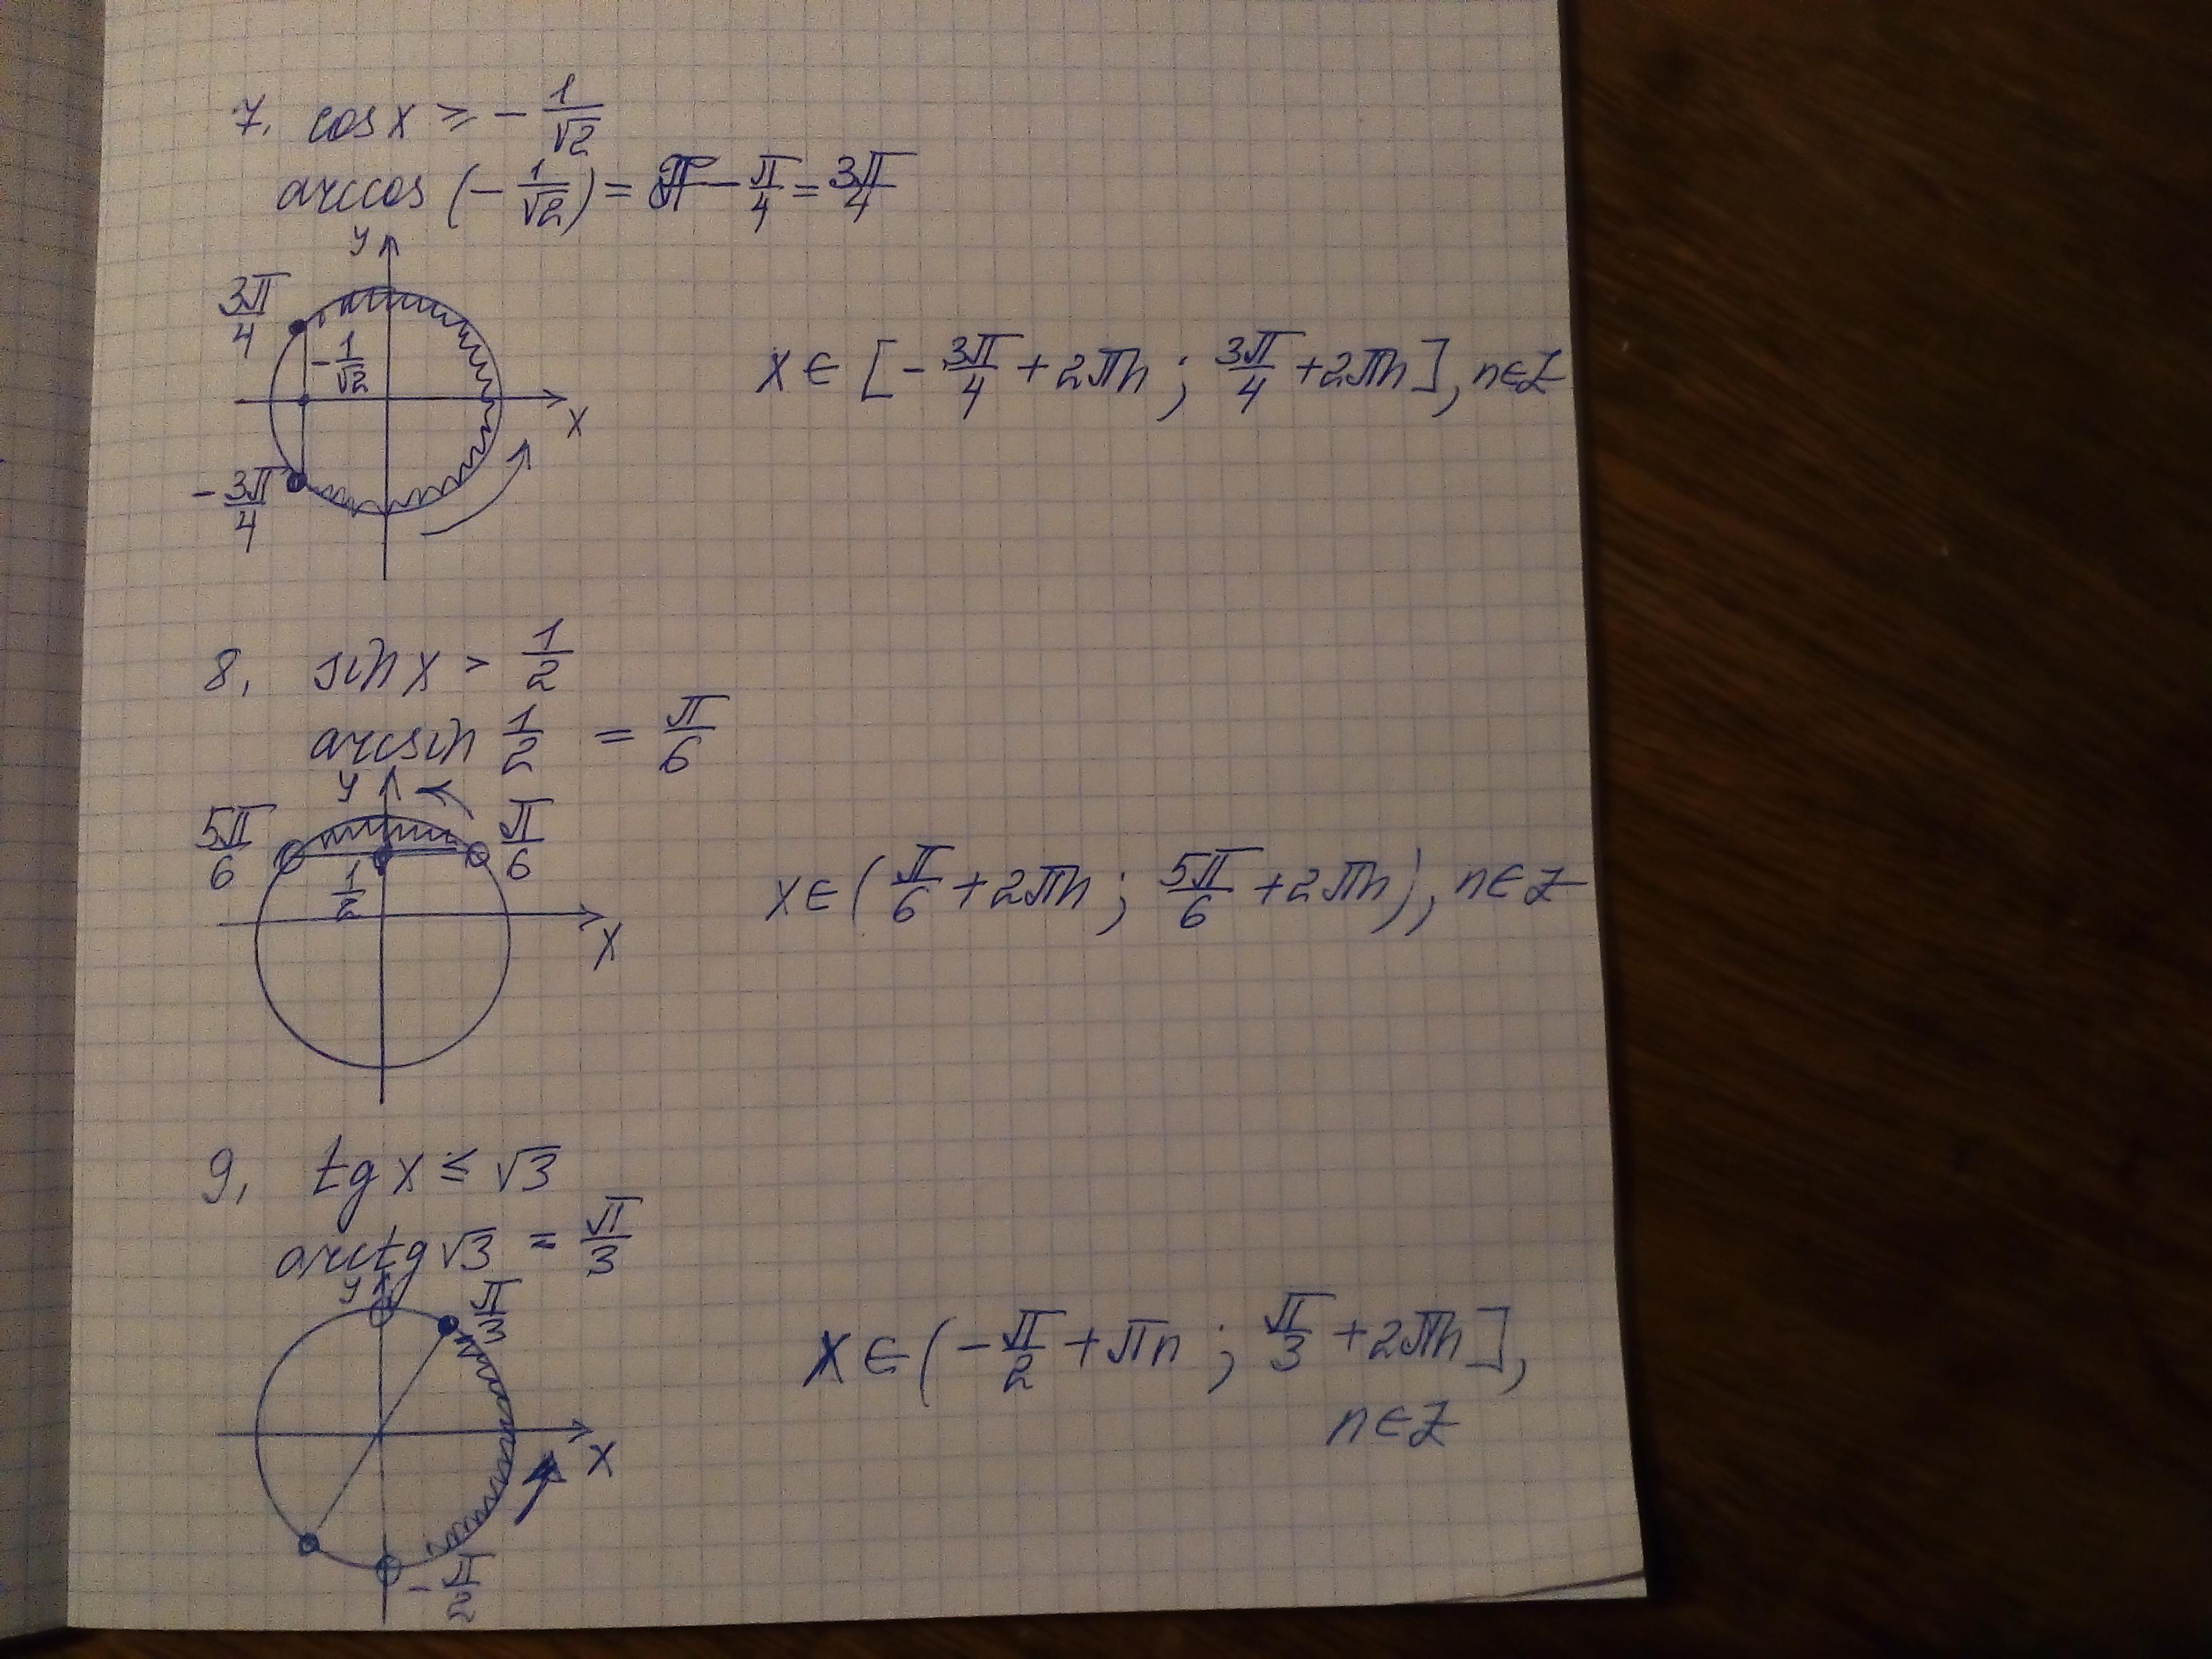 7. cos x ≥ - 1/√2
arccos (- 1/√2) = π - π/4 = 3π/4
y
3π/4
- 1/√2
x
- 3π/4
x ∈ [- 3π/4 + 2πn ; 3π/4 + 2πn], n ∈ Z
8. sin x > 1/2
arcsin 1/2 = π/6
y
5π/6
π/6
1/2
x
x ∈ (π/6 + 2πn ; 5π/6 + 2πn), n ∈ Z
9. tg x ≤ √3
arctg √3 = π/3
y
π/3
x
- π/2
x ∈ (- π/2 + πn ; π/3 + 2πn],
n ∈ Z